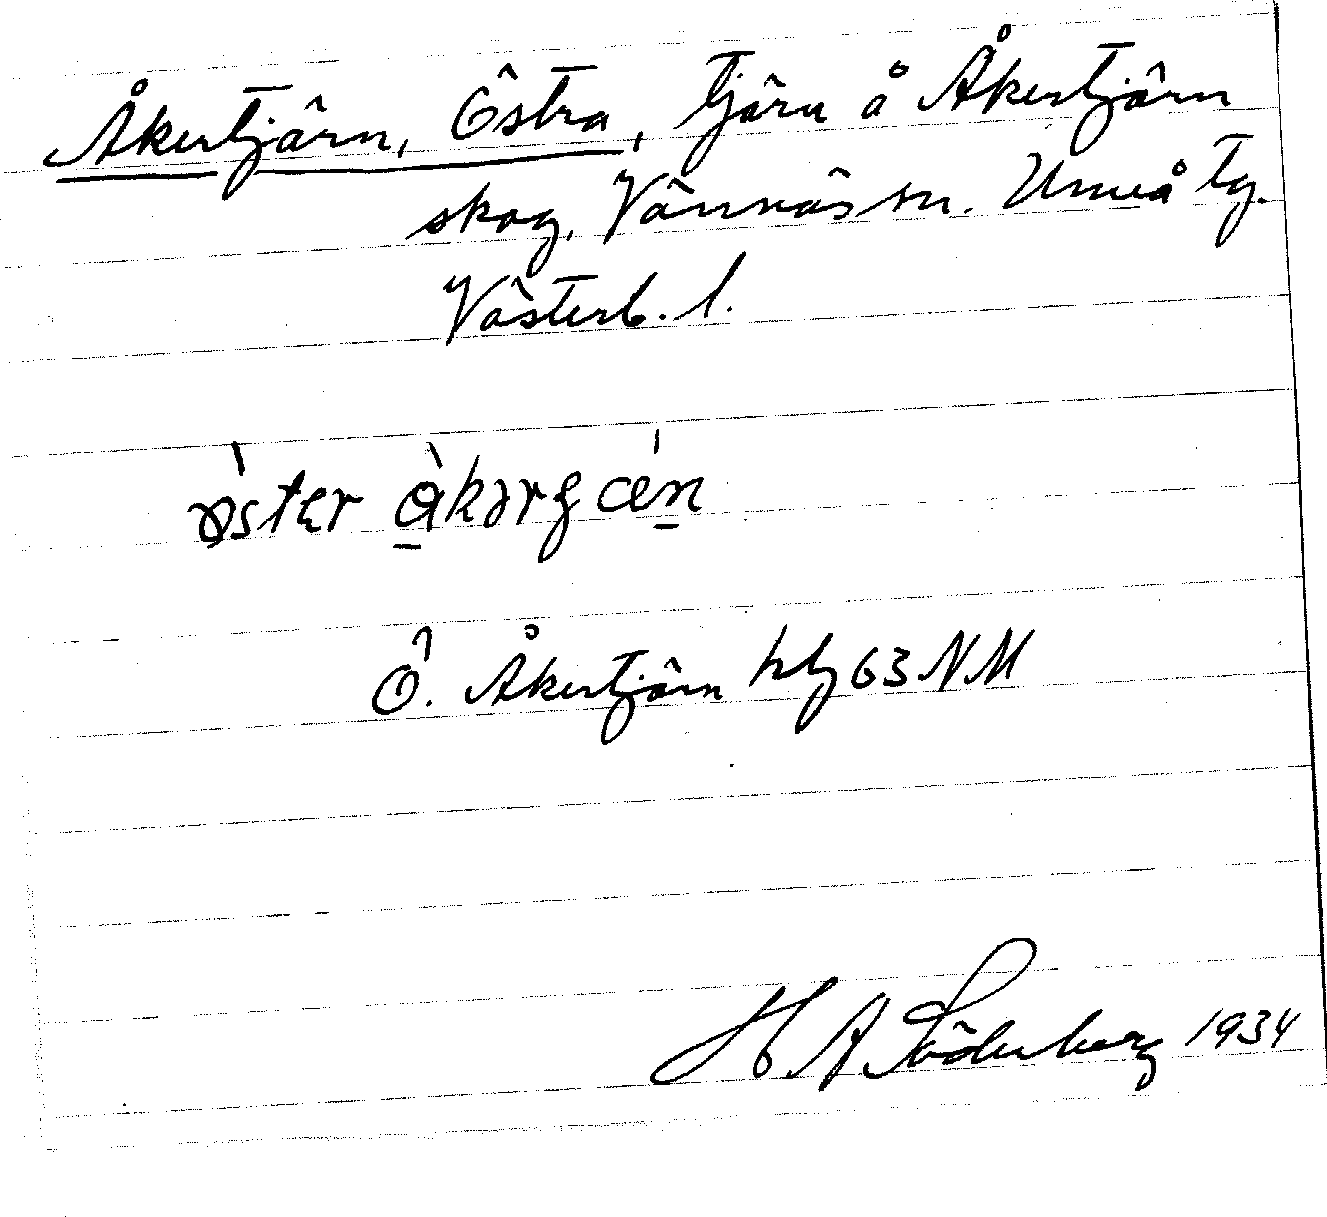 Åkertjärn, Östra, tjärn å Åkertjärn
skog, Vännäs sn. Umeå tg.
Västerb. l.
Ö. Åkertjärn hbg 63 NM
H A Söderberg 1934